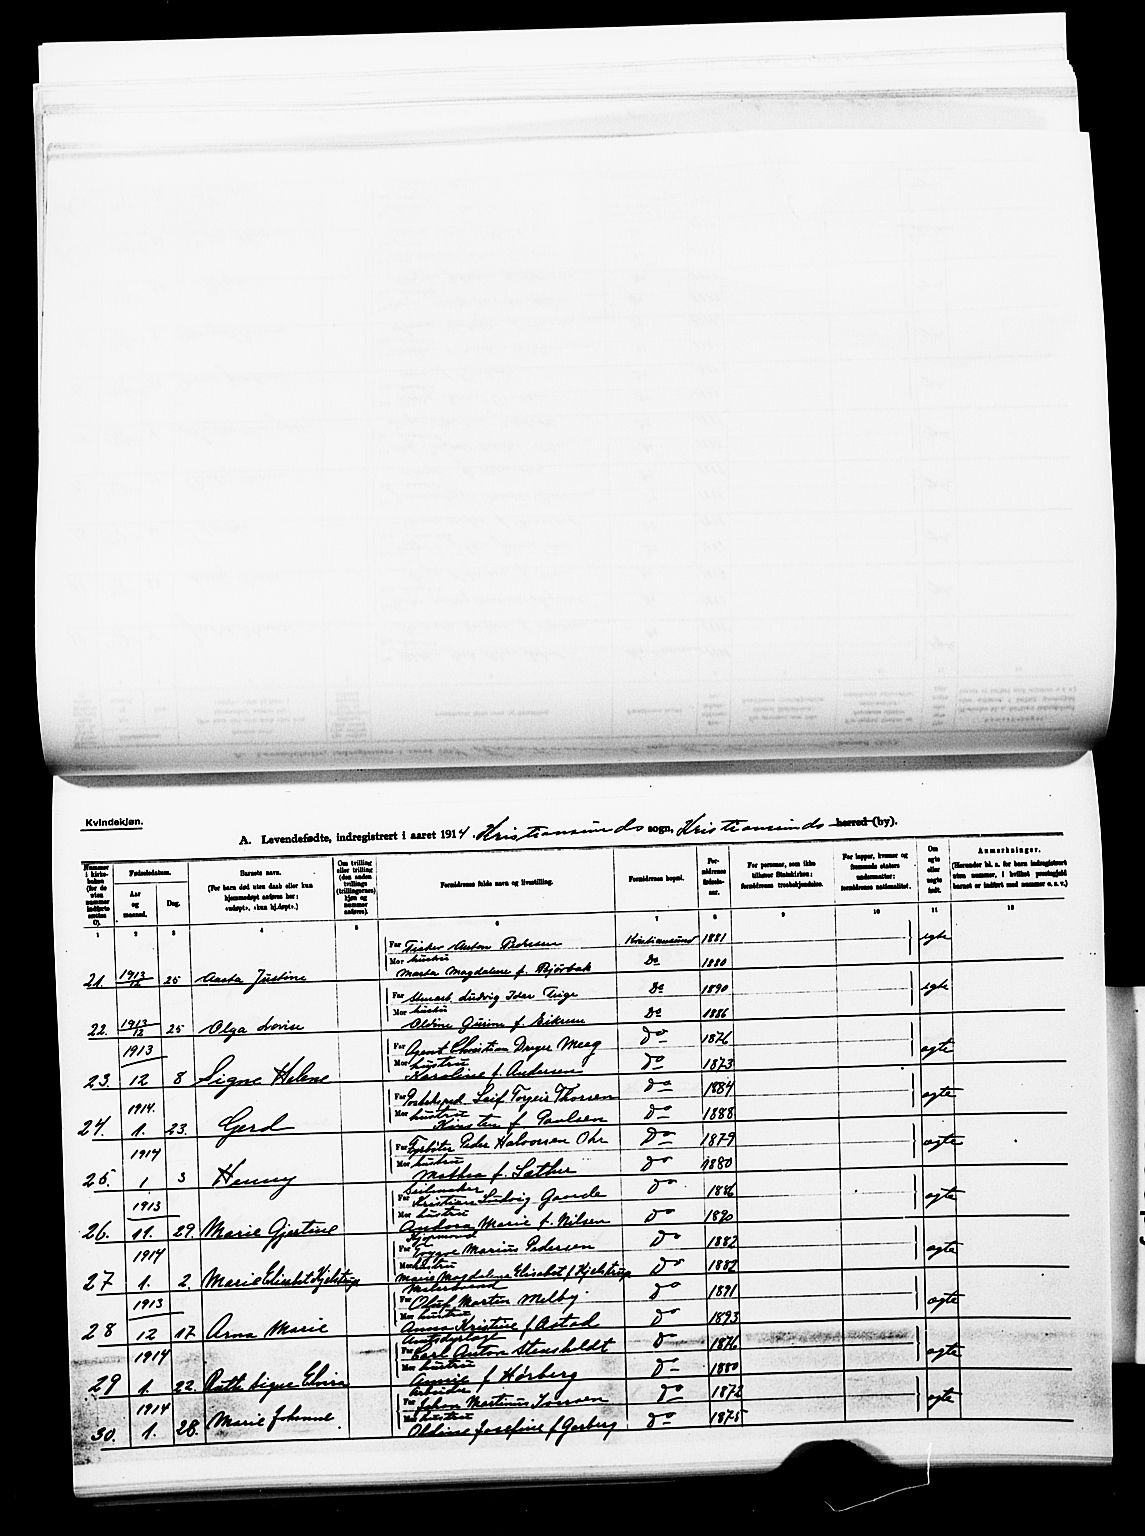 Kvindekjøn.
A. Levendefødte, indregistrert i aaret 1914. Kristiansunds sogn, Kristiansunds herred (by).
Nummer i kirkeboken (for de uten nummer indførte sættes 0).
Fødselsdatum.
Aar og maaned.
Dag.
Barnets navn.
(For barn død uten daab eller kun hjemmedøpt anføres her: «udøpt», «kun hj.døpt».)
Om tvilling eller trilling (den anden tvillings (trillingernes) kjøn og nummer anføres).
Forældrenes fulde navn og livsstilling.
Forældrenes bopæl.
Forældrenes fødselsaar.
For personer, som ikke tilhører Statskirken: forældrenes trosbekjendelse.
For lapper, kvæner og fremmede staters undersaatter: forældrenes nationalitet.
Om egte eller uegte født.
Anmerkninger.
(Herunder bl. a. for barn indregistrert uten nummer, i hvilket prestegjeld barnet er indført med nummer o. s. v.)
1 2 3 4 5 6 7 8 9 10 11 12
Far Fisker Anton Pedersen Kristiansund 1881 egte
21. 1913/12 25 Aasta Justine Mor hustru Marta Magdalene f. Bjørbak Do 1880
Far Ludvig Do 1890 egte
22. 1913/12 25 Olga Lovise Mor hustru Oldine f. Eikrem Do 1886
1913 Far Agent Christian Dreyer Meeg Do 1876 egte
23. 12 8 Signe Helene Mor hustru Karoline f. Andersen Do 1873
1914. Far Leif Torgeir Thorsen Do 1884 egte
24. 1. 23. Gerd Mor hustru Kirsten f. Paulsen Do 1888
1914 Far Fyrbøter Peder Halvorsen Do 1879 egte
25. 1 3 Henny Mor hustru Mathea f. Sæther Do 1880
1913 Far Seilmaker Kristian Ludvig Do 1886 egte
26. 11. 29. Marie Gjertine Mor hustru Andora Marie f. Nilsen Do 1890
1914 Far Trygve Marius Pedersen Do 1882 egte
27 1. 2. Marie Elisabet Kjelstrup Mor hustru Marie Magdalene Elisabet f Kjelstrup Do 1882
1913 Far Oluf Martin Melby. Do 1891 egte
28 12 17. Arna Marie Mor hustru Anna Kristine f Astad Do 1893
1914 Far Carl Anton Stensholdt Do 1876 egte
29 1. 22. Ruth Signe Elvira Mor hustru Annie f Hørberg Do 1880
1914 Far Arbeider Johan Martinus Do 1872 egte
30. 1. 28. Marie Johanne. Mor hustru Oldine Josefine f Garberg Do 1875